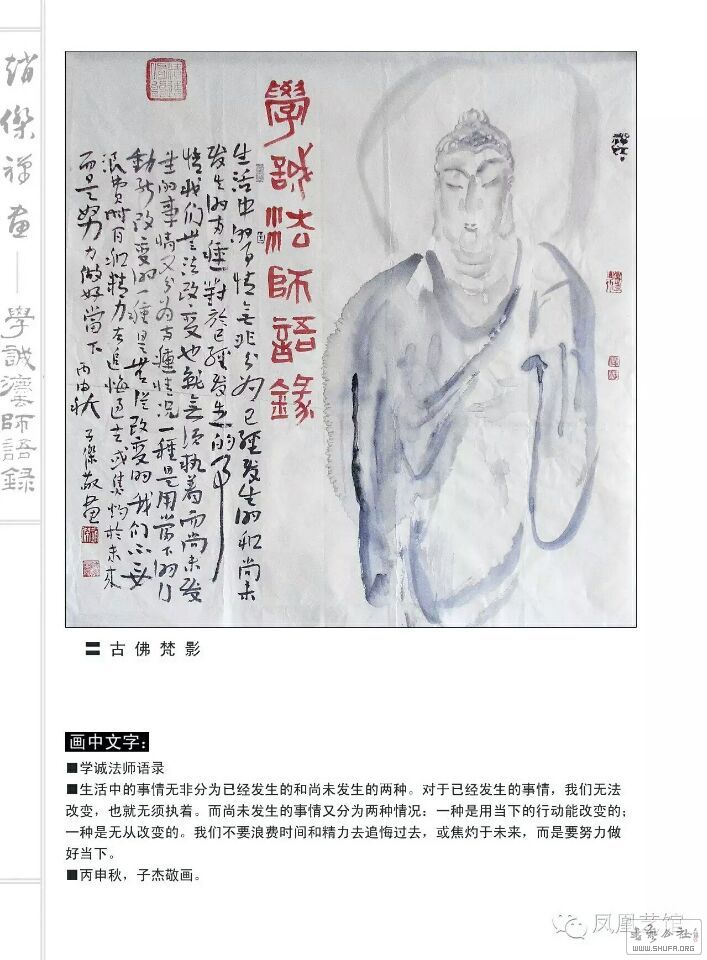 趙傑禅畫——學誠灋師語錄
學誠法師語錄
生活中的事情無非分为已經發生的和尚未
發生的两種對於已經發生的事
情我们無法改變也就無須執着而尚未發
生的事情又分为两種情况一種是用當下的行
動能改變的一種是無從改變的我们不要
浪費時间和精力去追悔過去或焦灼於未來
而是努力做好當下 丙申秋 子傑敬畫
〓 古佛梵影
画中文字：
■学诚法师语录
■生活中的事情无非分为已经发生的和尚未发生的两种。对于已经发生的事情，我们无法
改变，也就无须执着。而尚未发生的事情又分为两种情况：一种是用当下的行动能改变的；
一种是无从改变的。我们不要浪费时间和精力去追悔过去，或焦灼于未来，而是要努力做
好当下。
■丙申秋，子杰敬画。
凤凰艺馆
WWW.SHUFA.ORG